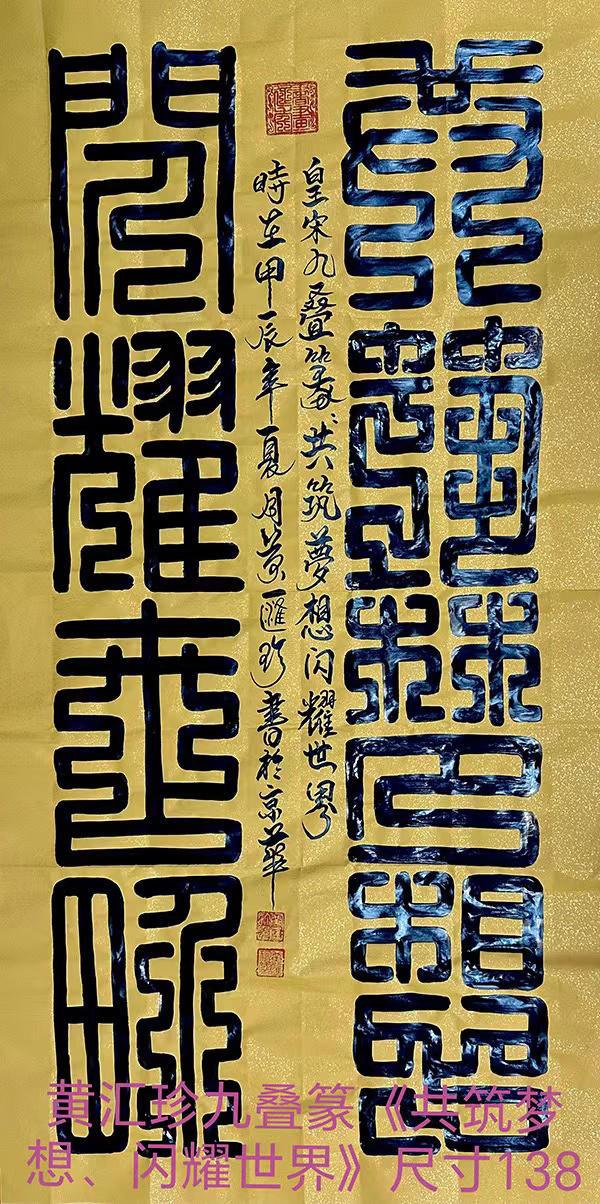 共筑夢想
閃耀世界
皇宋九叠篆共筑夢想闪耀世界
時在甲辰年夏月黄匯珍書於京華
黄汇珍九叠篆《共筑梦
想、闪耀世界》尺寸138